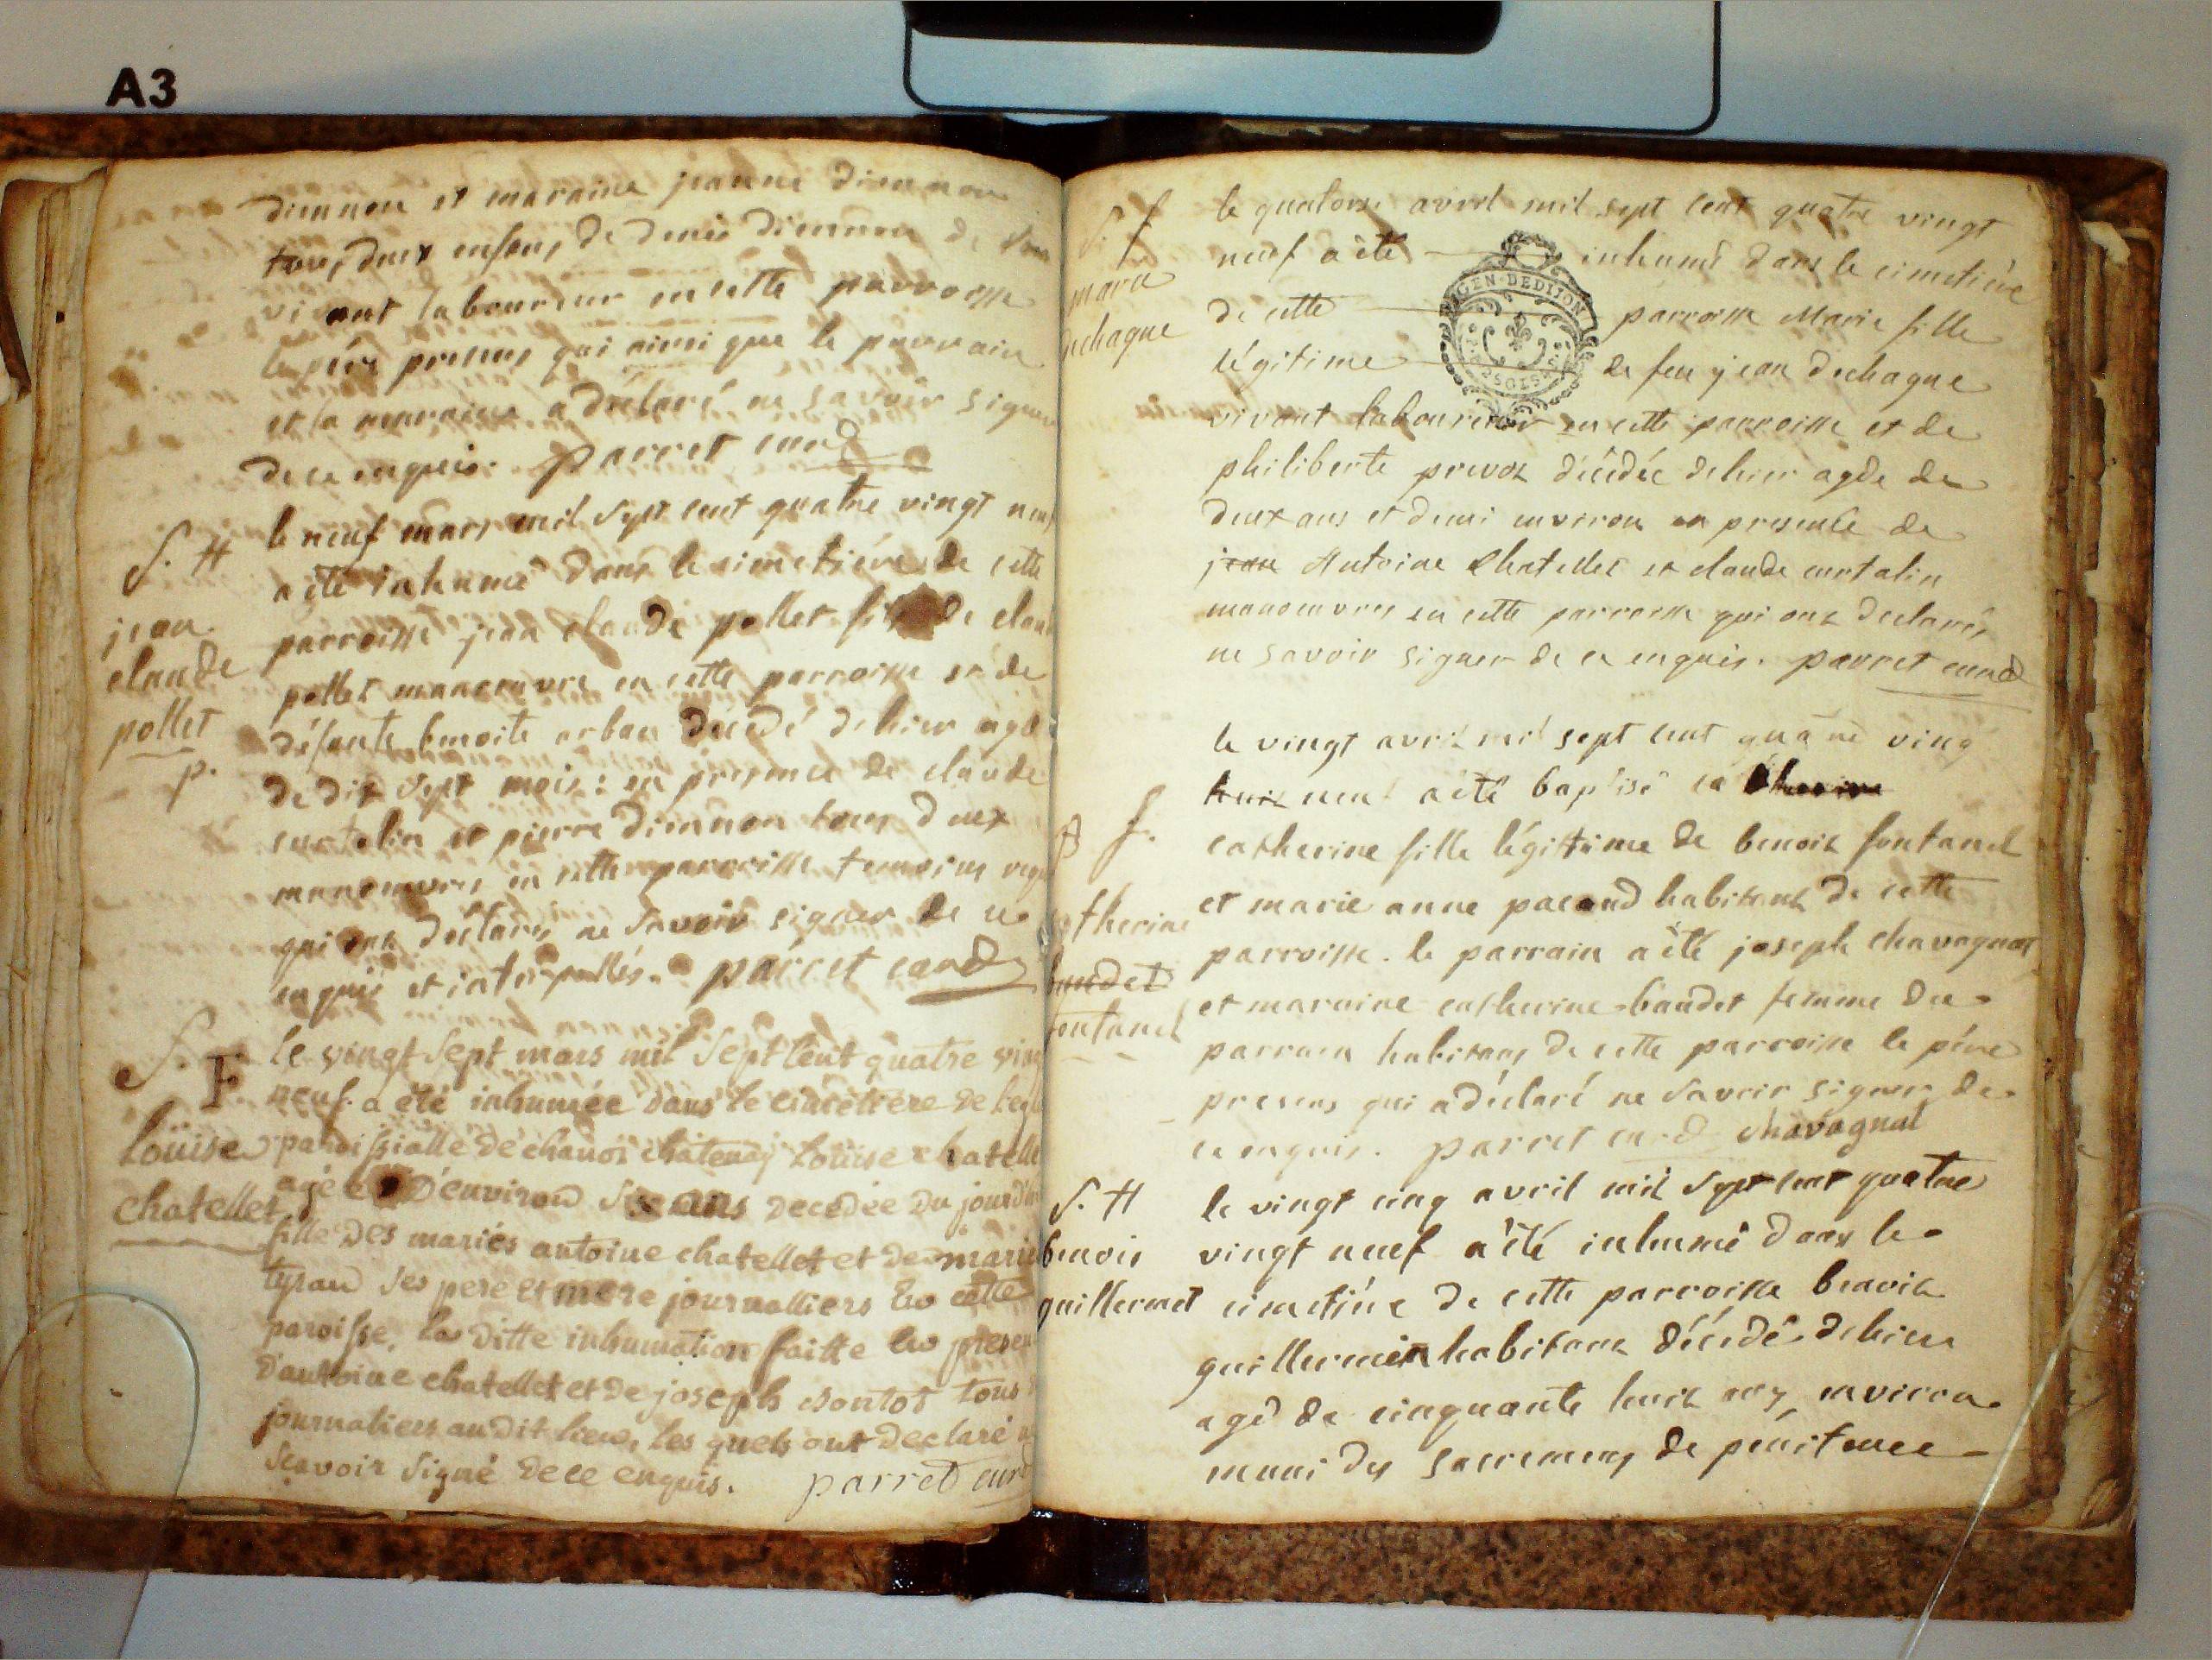 A3
diennon et maraine jeanne diennon
tous deux enfans de denis diennon de son
vivant laboureur en cette parroisse
le père presens qui ainsi que le parrain
et la maraine a déclaré ne savoir signer
de ce enquis. parret curé
S. H
jean
claude
pollet
p.
le neuf mars mil sept cent quatre vingt neuf
a été inhumé dans le cimetiére de cette
parroisse jean claude pollet fils de claude
pollet manoeuvre en cette parroisse et de
défunte benoite arban décédé dehier agé
de dix sept mois : en presence de claude
curtalin et pierre diennon tous deux
manoeuvres en cette parroisse temoins requis
qui ont déclarés ne savoir signer de ce
enquis et interpellés. parret curé
S. F
Loüise
chatellet
le vingt sept mars mil sept cent quatre vingt
neuf a été inhumée dans le cimetiere de l'eglise
paroissialle de chanoz chatenay Loüise chatellet
agée d'environ six ans decedée du jourd'hier
fille des mariés antoine chatellet et de marie
tyran ses pere et mere journalliers en cette
paroisse, la ditte inhumation faitte en presence
d'antoine chatellet et de joseph tous
journaliers audit lieu, les quels ont declaré ne
scavoir signé de ce enquis. parret curé
S. f
marie
dechagne
le quatorse avril mil sept cent quatre vingt
neuf a été inhumé dans le cimetiére
de cette parroisse Marie fille
légitime de feu jean dechagne
GEN. DE DIJON
vivant laboureur en cette parroisse et de
philiberte prevot décédée dehier agée de
deux ans et demi environ en presence de
jean Antoine Chatellet et claude curtalin
manoeuvres en cette parroisse qui ont declarés
ne savoir signer de ce enquis. parret curé
B f.
catherine
baudet
fontanel
le vingt avril mil sept cent quatre vingt
huit neuf a été baptisé ca
catherine fille légittime de benoit fontanel
et marie anne pacoud habitans de cette
parroisse. le parrain a été joseph chavagnat
et maraine catherine baudet femme du
parrain habitans de cette parroisse le pére
presens qui a déclaré ne savoir signer de
ce enquis. parret curé chavagnat
S. H
benoit
guillermet
le vingt cinq avril mil sept cent quatre
vingt neuf a été inhumé dans le
cimetiére de cette parroisse benoit
guillermin habitant décédé dehier
agé de cinquante huit ans environ
muni des sacremens de pénitence